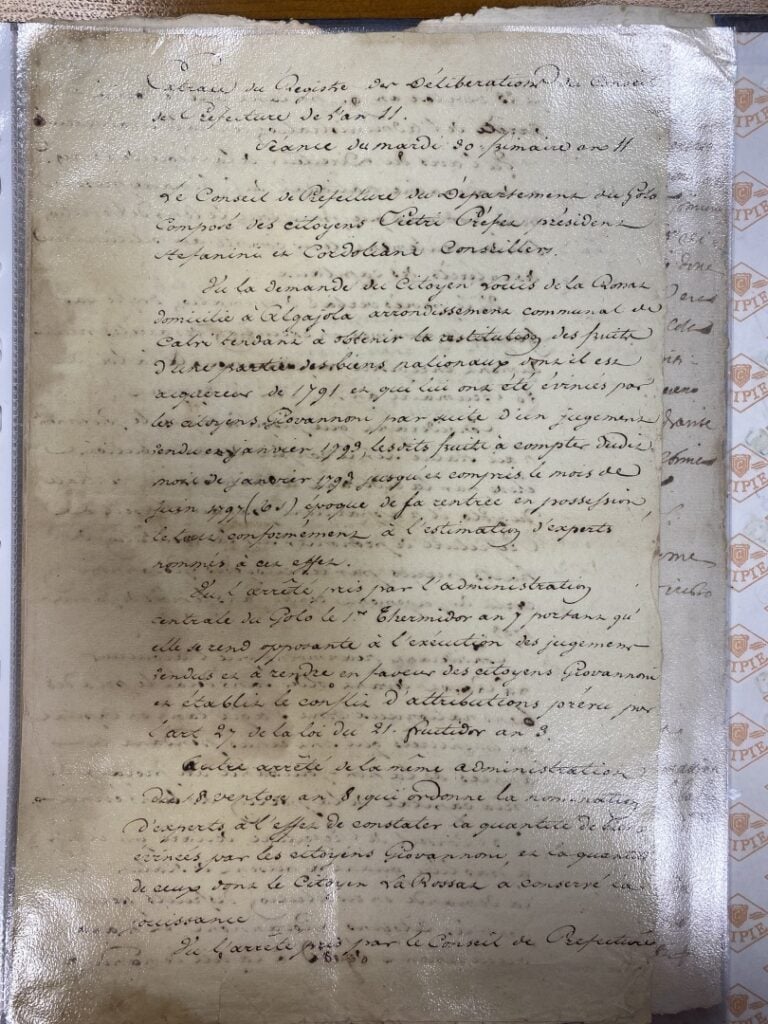 Extrait du Registre des Délibérations du Conseil
de Préfecture de l'an 11.
Séance du mardi 30 frimaire an 11
Le Conseil de Préfecture du Département du Golo
Composé des citoyens Pietri Préfet président
Stefanini et Cordoliani Conseillers.
Vu la demande du Citoyen Louis de la
domicilié à Algajola arrondissement communal de
Calvi tendant à obtenir la restitution des fruits
d'une partie des biens nationaux dont il est
acquéreur de 1791 et qui lui ont été évincés par
les citoyens Giovannoni par suite d'un jugement
rendu en janvier 1793, lesdits fruits à compter dudit
mois de janvier 1793 jusqu'et compris le mois de
juin 1797 époque de sa rentrée en possession
le tout conformément à l'estimation d'experts
nommés à cet effet.
Vu l'arrêté pris par l'administration
centrale du Golo le 1er Thermidor an 7 portant qu'
elle se rend opposante à l'exécution des jugemens
rendus et à rendre en faveur des citoyens Giovannoni
et établit le conflit d'attributions prévu par
l'art 27 de la loi du 21 fructidor an 3.
Autre arrêté de la même administration
du 18 ventose an 8 qui ordonne la nomination
d'experts à l'effet de constater la quantité de
évincés par les citoyens Giovannoni, et la quantité
de ceux dont le Citoyen La Rossat a conservé la
jouissance
Vu l'arrêté pris par le Conseil de Préfecture